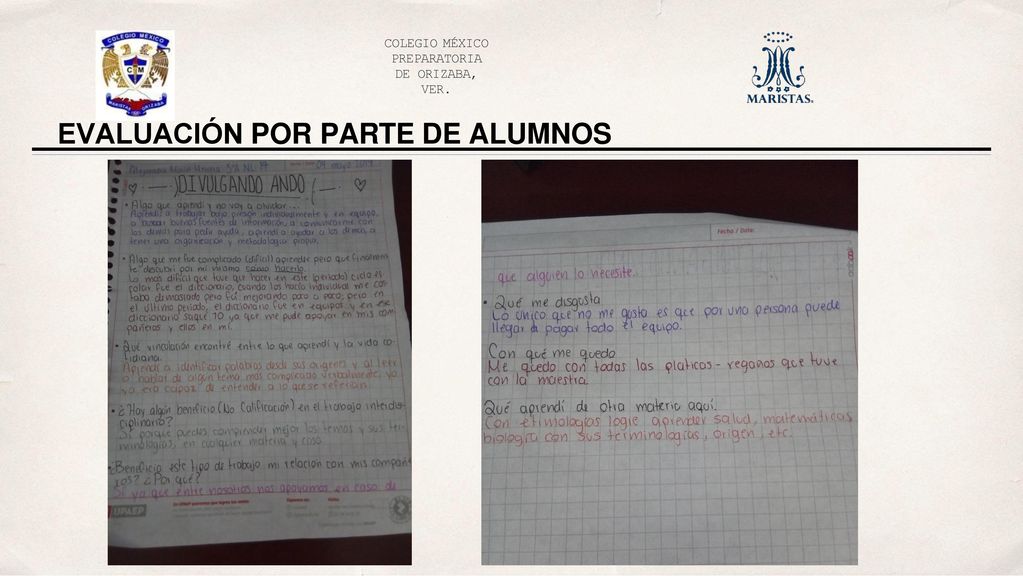 COLEGIO MÉXICO
MARISTAS ORIZABA
COLEGIO MÉXICO
PREPARATORIA
DE ORIZABA,
VER.
MARISTAS
EVALUACIÓN POR PARTE DE ALUMNOS
DIVULGANDO ANDO
• Algo que aprendí y no voy a olvidar...
Aprendí a trabajar bajo presión individualmente y en equipo,
a buscar buenas fuentes de información, a comunicarme con
los demás para pedir ayuda, aprendí a ayudar a los demás, a
tener una organización y metodología propia.
• Algo que me fue complicado (difícil) aprender pero que finalmen
te descubrí por mi misma como hacerlo.
Lo más difícil que tuve que hacer en este (periodo) ciclo es-
colar fue el diccionario, cuando los hacía individual me cos-
taba demasiado pero fui mejorando poco a poco; pero en
el último periodo, el diccionario fue en equipos y en ese
diccionario saqué 10 ya que me pude apoyar en mis com
pañeros y ellos en mí.
• Qué vinculación encontré entre lo que aprendí y la vida co-
tidiana.
Aprendí a identificar palabras desde sus orígenes y al leer
o hablar de algún tema más complicado verbalmente, yo
ya era capaz de entender a lo que se referían.
• ¿Hay algún beneficio (No Calificación) en el trabajo interdis-
ciplinario?
Sí porque puedes comprender mejor los temas y sus ter-
minologías, en cualquier materia y caso.
• ¿Beneficio este tipo de trabajo mi relación con mis compañe
ros? ¿Por qué?
Sí ya que entre nosotros nos apoyamos en caso de
UPAEP
Fecha / Date:
que alguien lo necesite.
• Qué me disgusta
Lo único que no me gusta es que por una persona puede
llegar a pagar todo el equipo.
Con qué me quedo
Me quedo con todas las platicas - regaños que tuve
con la maestra.
Qué aprendí de otra materia aquí.
Con etimologías logre aprender salud, matemáticas
biología con sus terminologías, origen, etc.